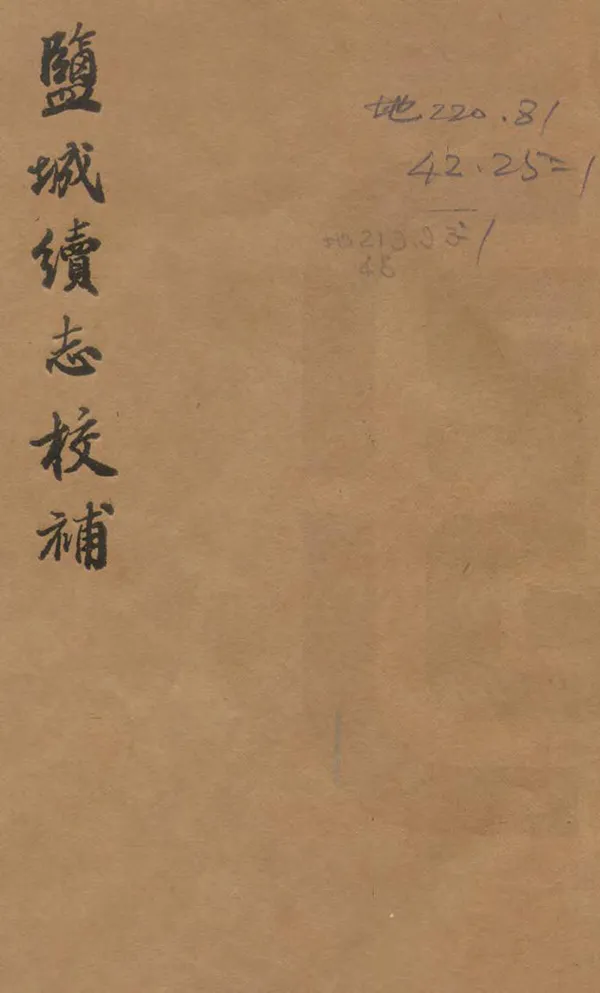 鹽城續志校補
地220.81
42.25=1
地213.9